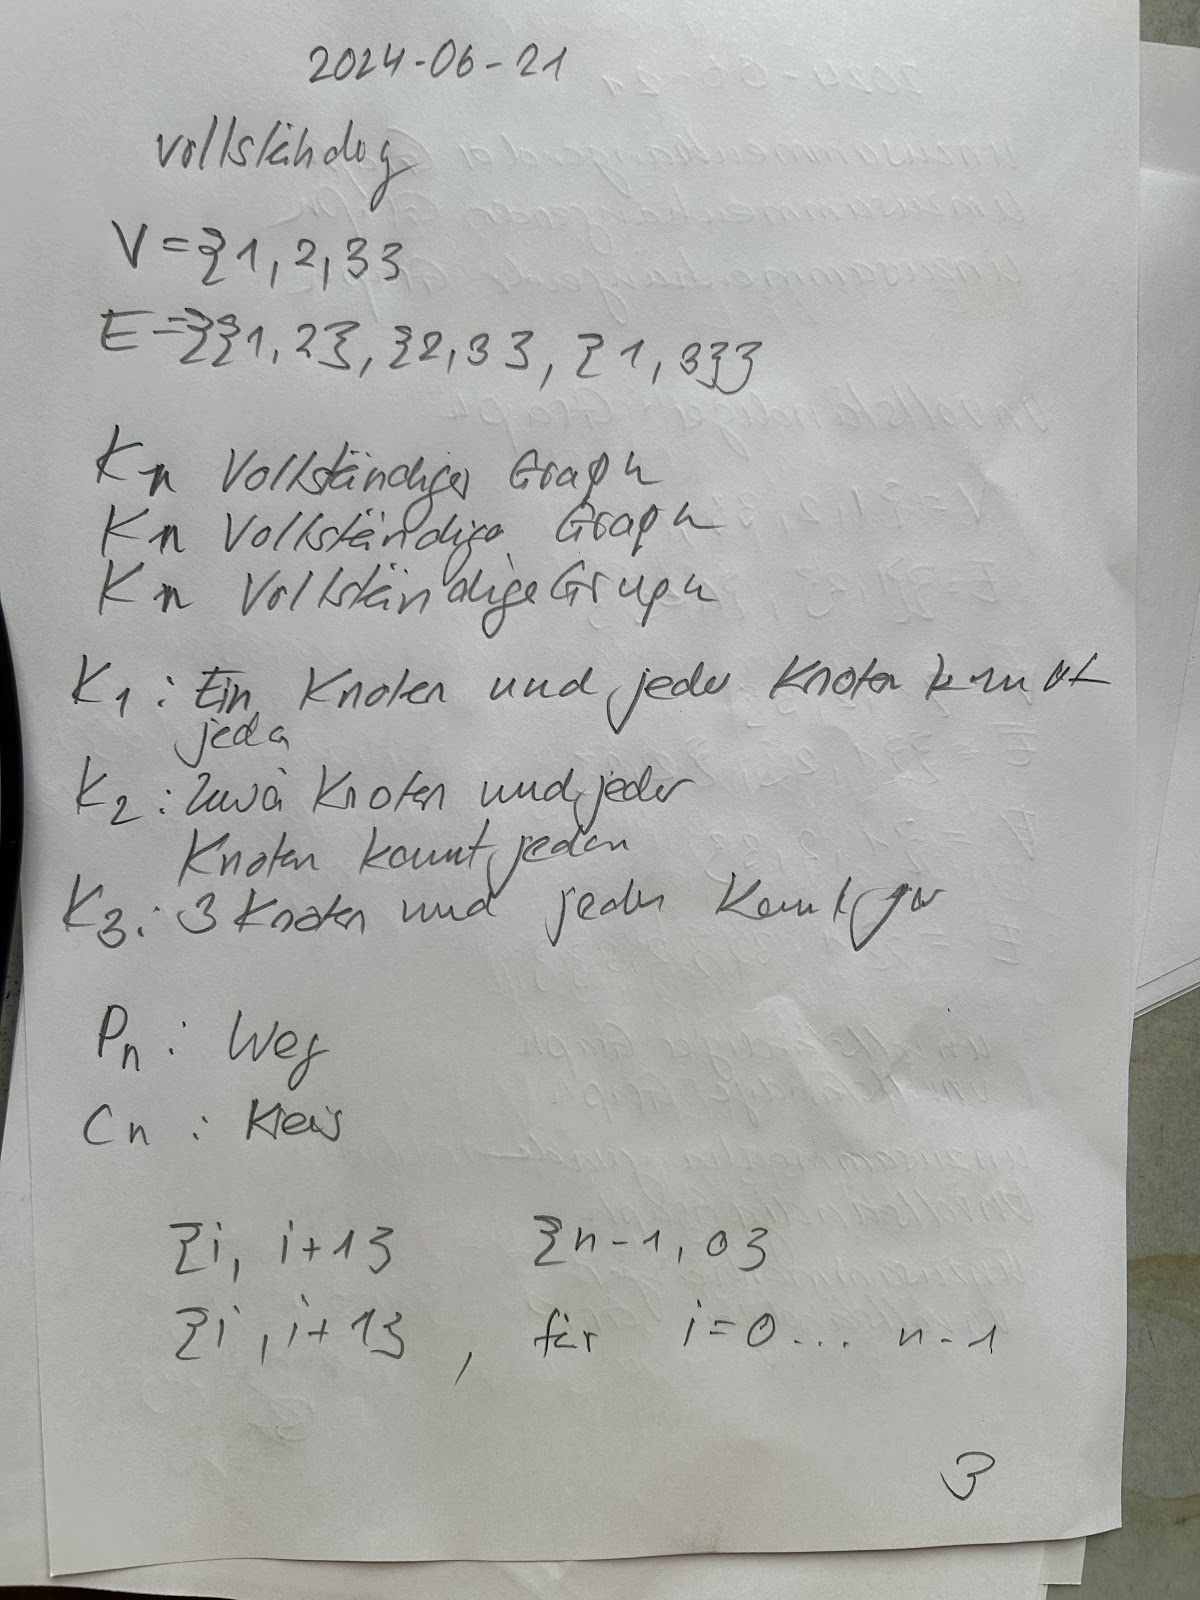 2024-06-21
vollständig
V={1,2,3}
E={{1,2},{2,3},{1,3}}
Kn Vollständiger Graph
Kn Vollständige Graph
Kn Vollständige Graph
K1: Ein Knoten und jeder Knoten kennt
jeden
K2: Zwei Knoten und jeder
Knoten kennt jeden
K3: 3 Knoten und jeder kennt
Pn: Weg
Cn: Kreis
{i, i+1} {n-1, 0}
{i, i+1}, für i=0... n-1
3